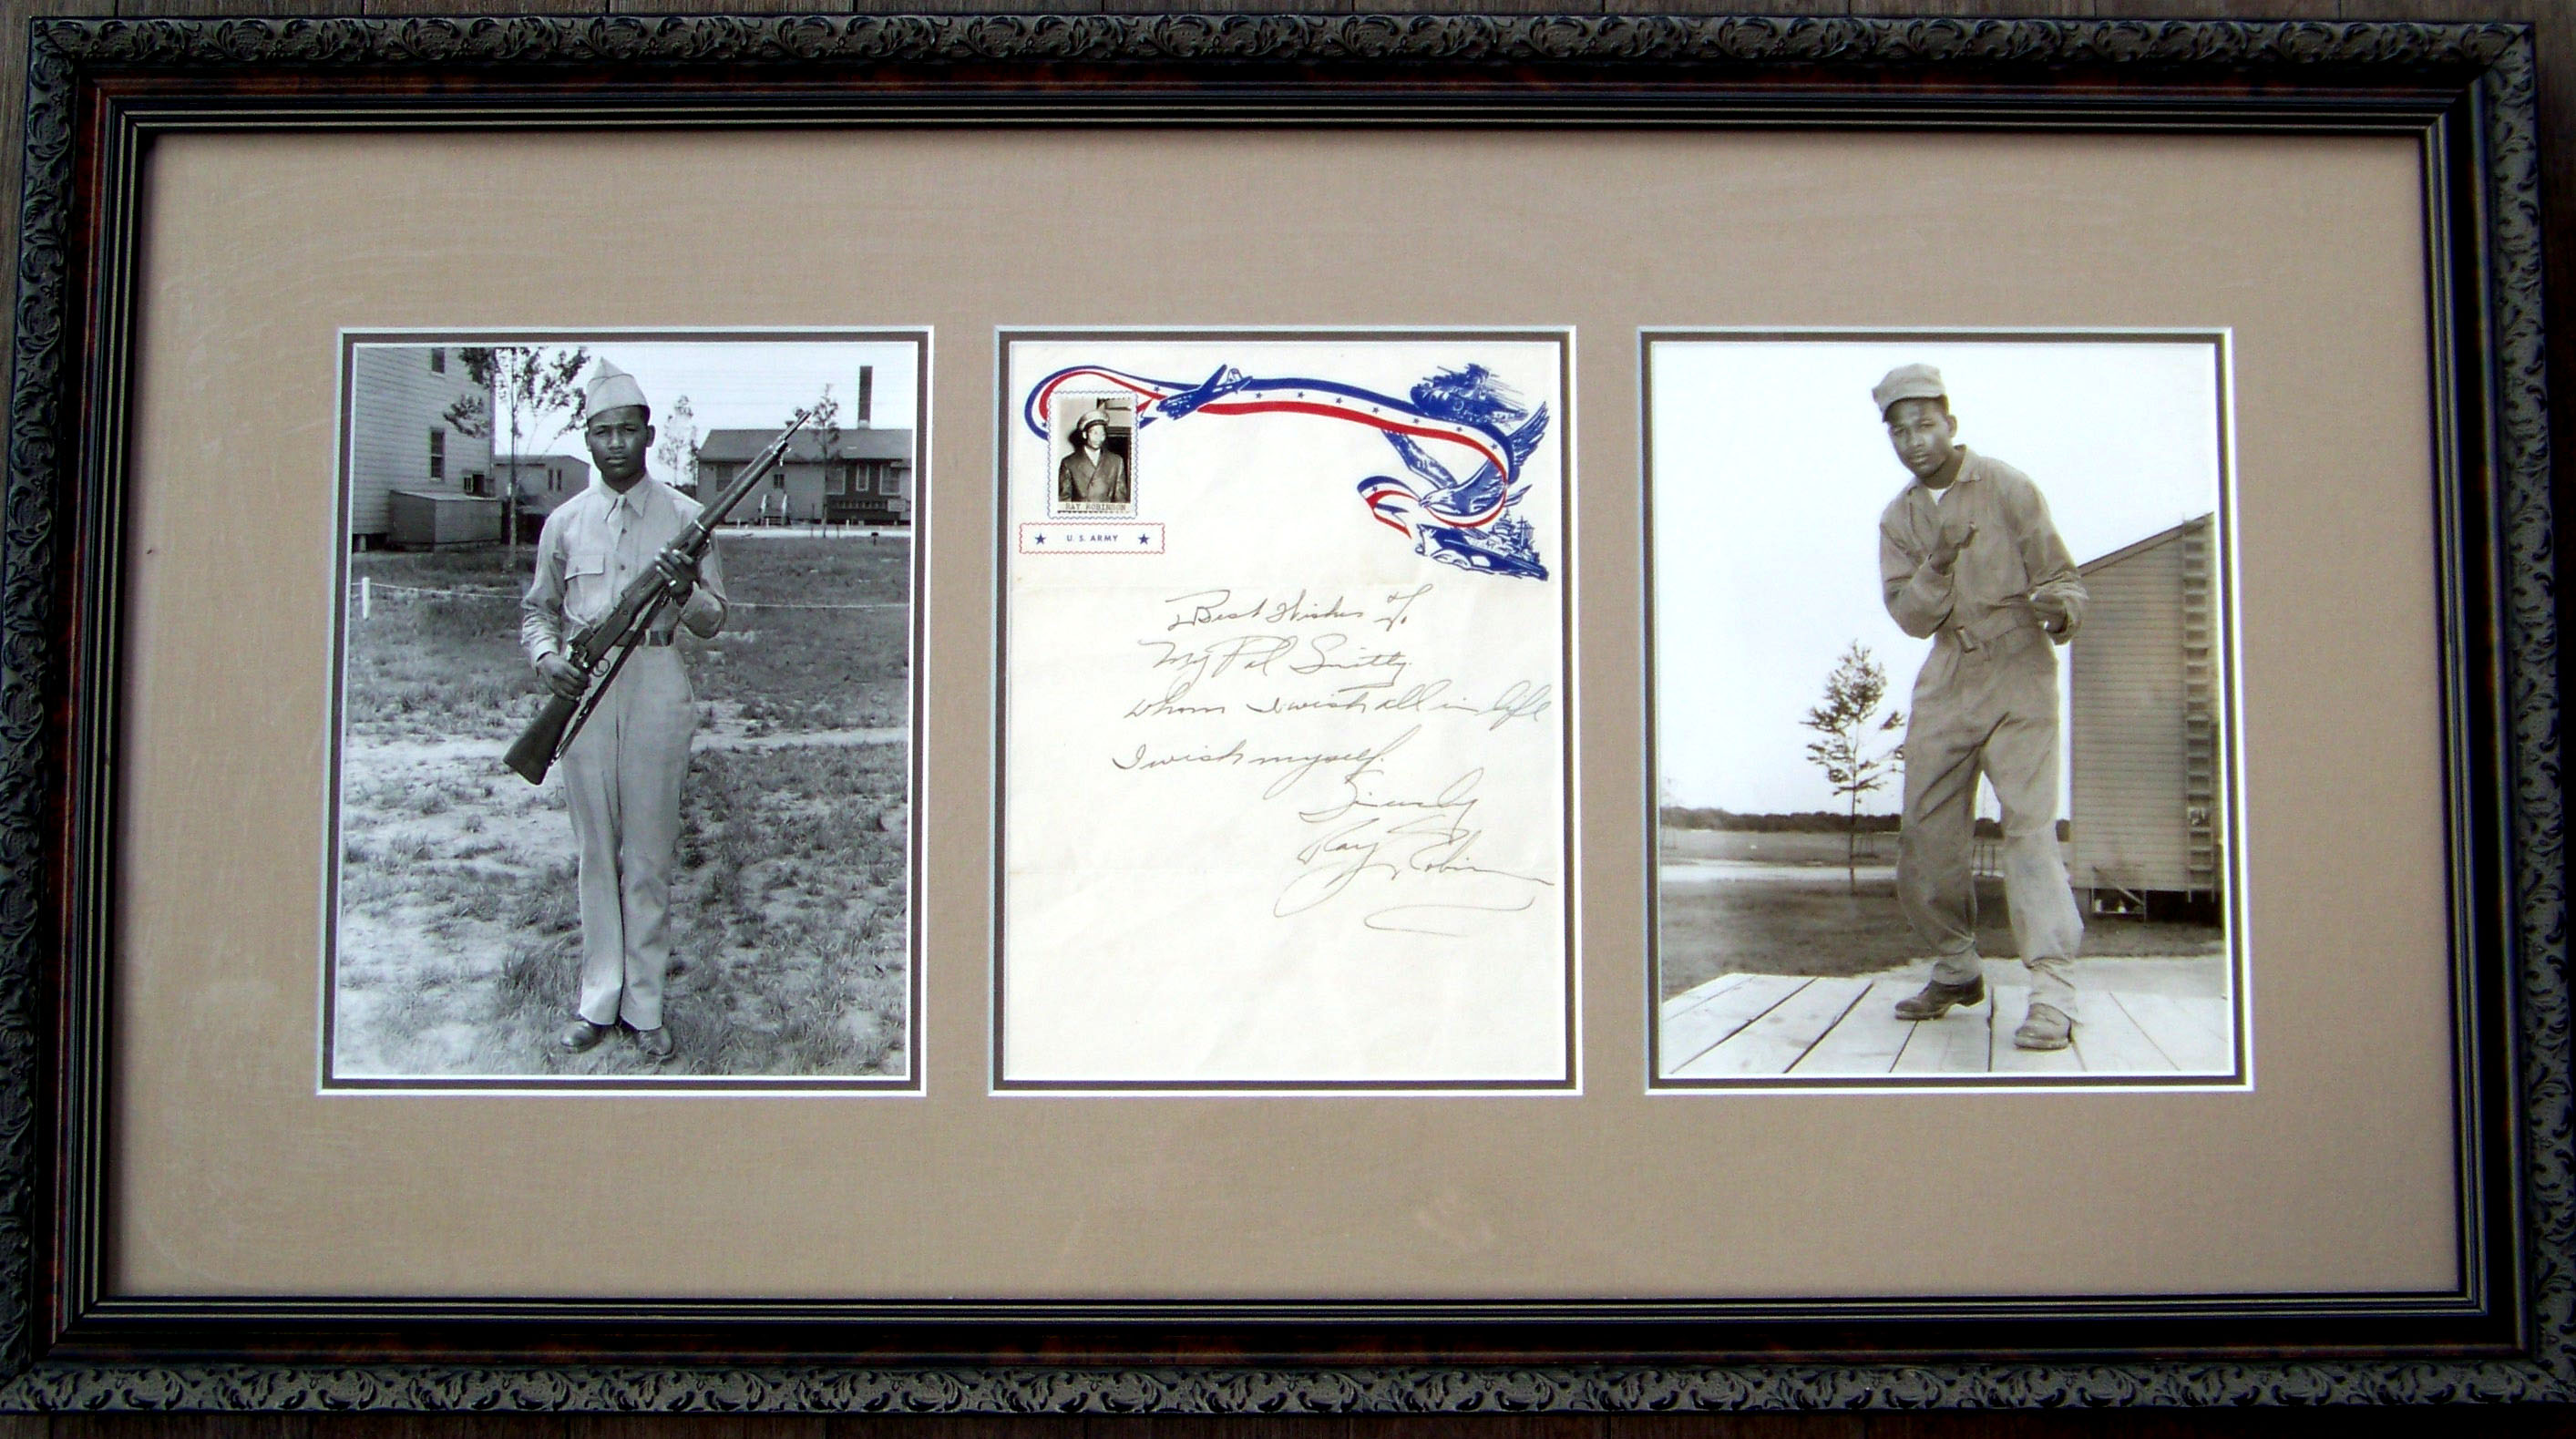 RAY ROBINSON
★ U. S. ARMY ★
Best Wishes To
My Pal Smitty
whom I wish all in life
I wish myself.
Sincerely
Ray Robinson